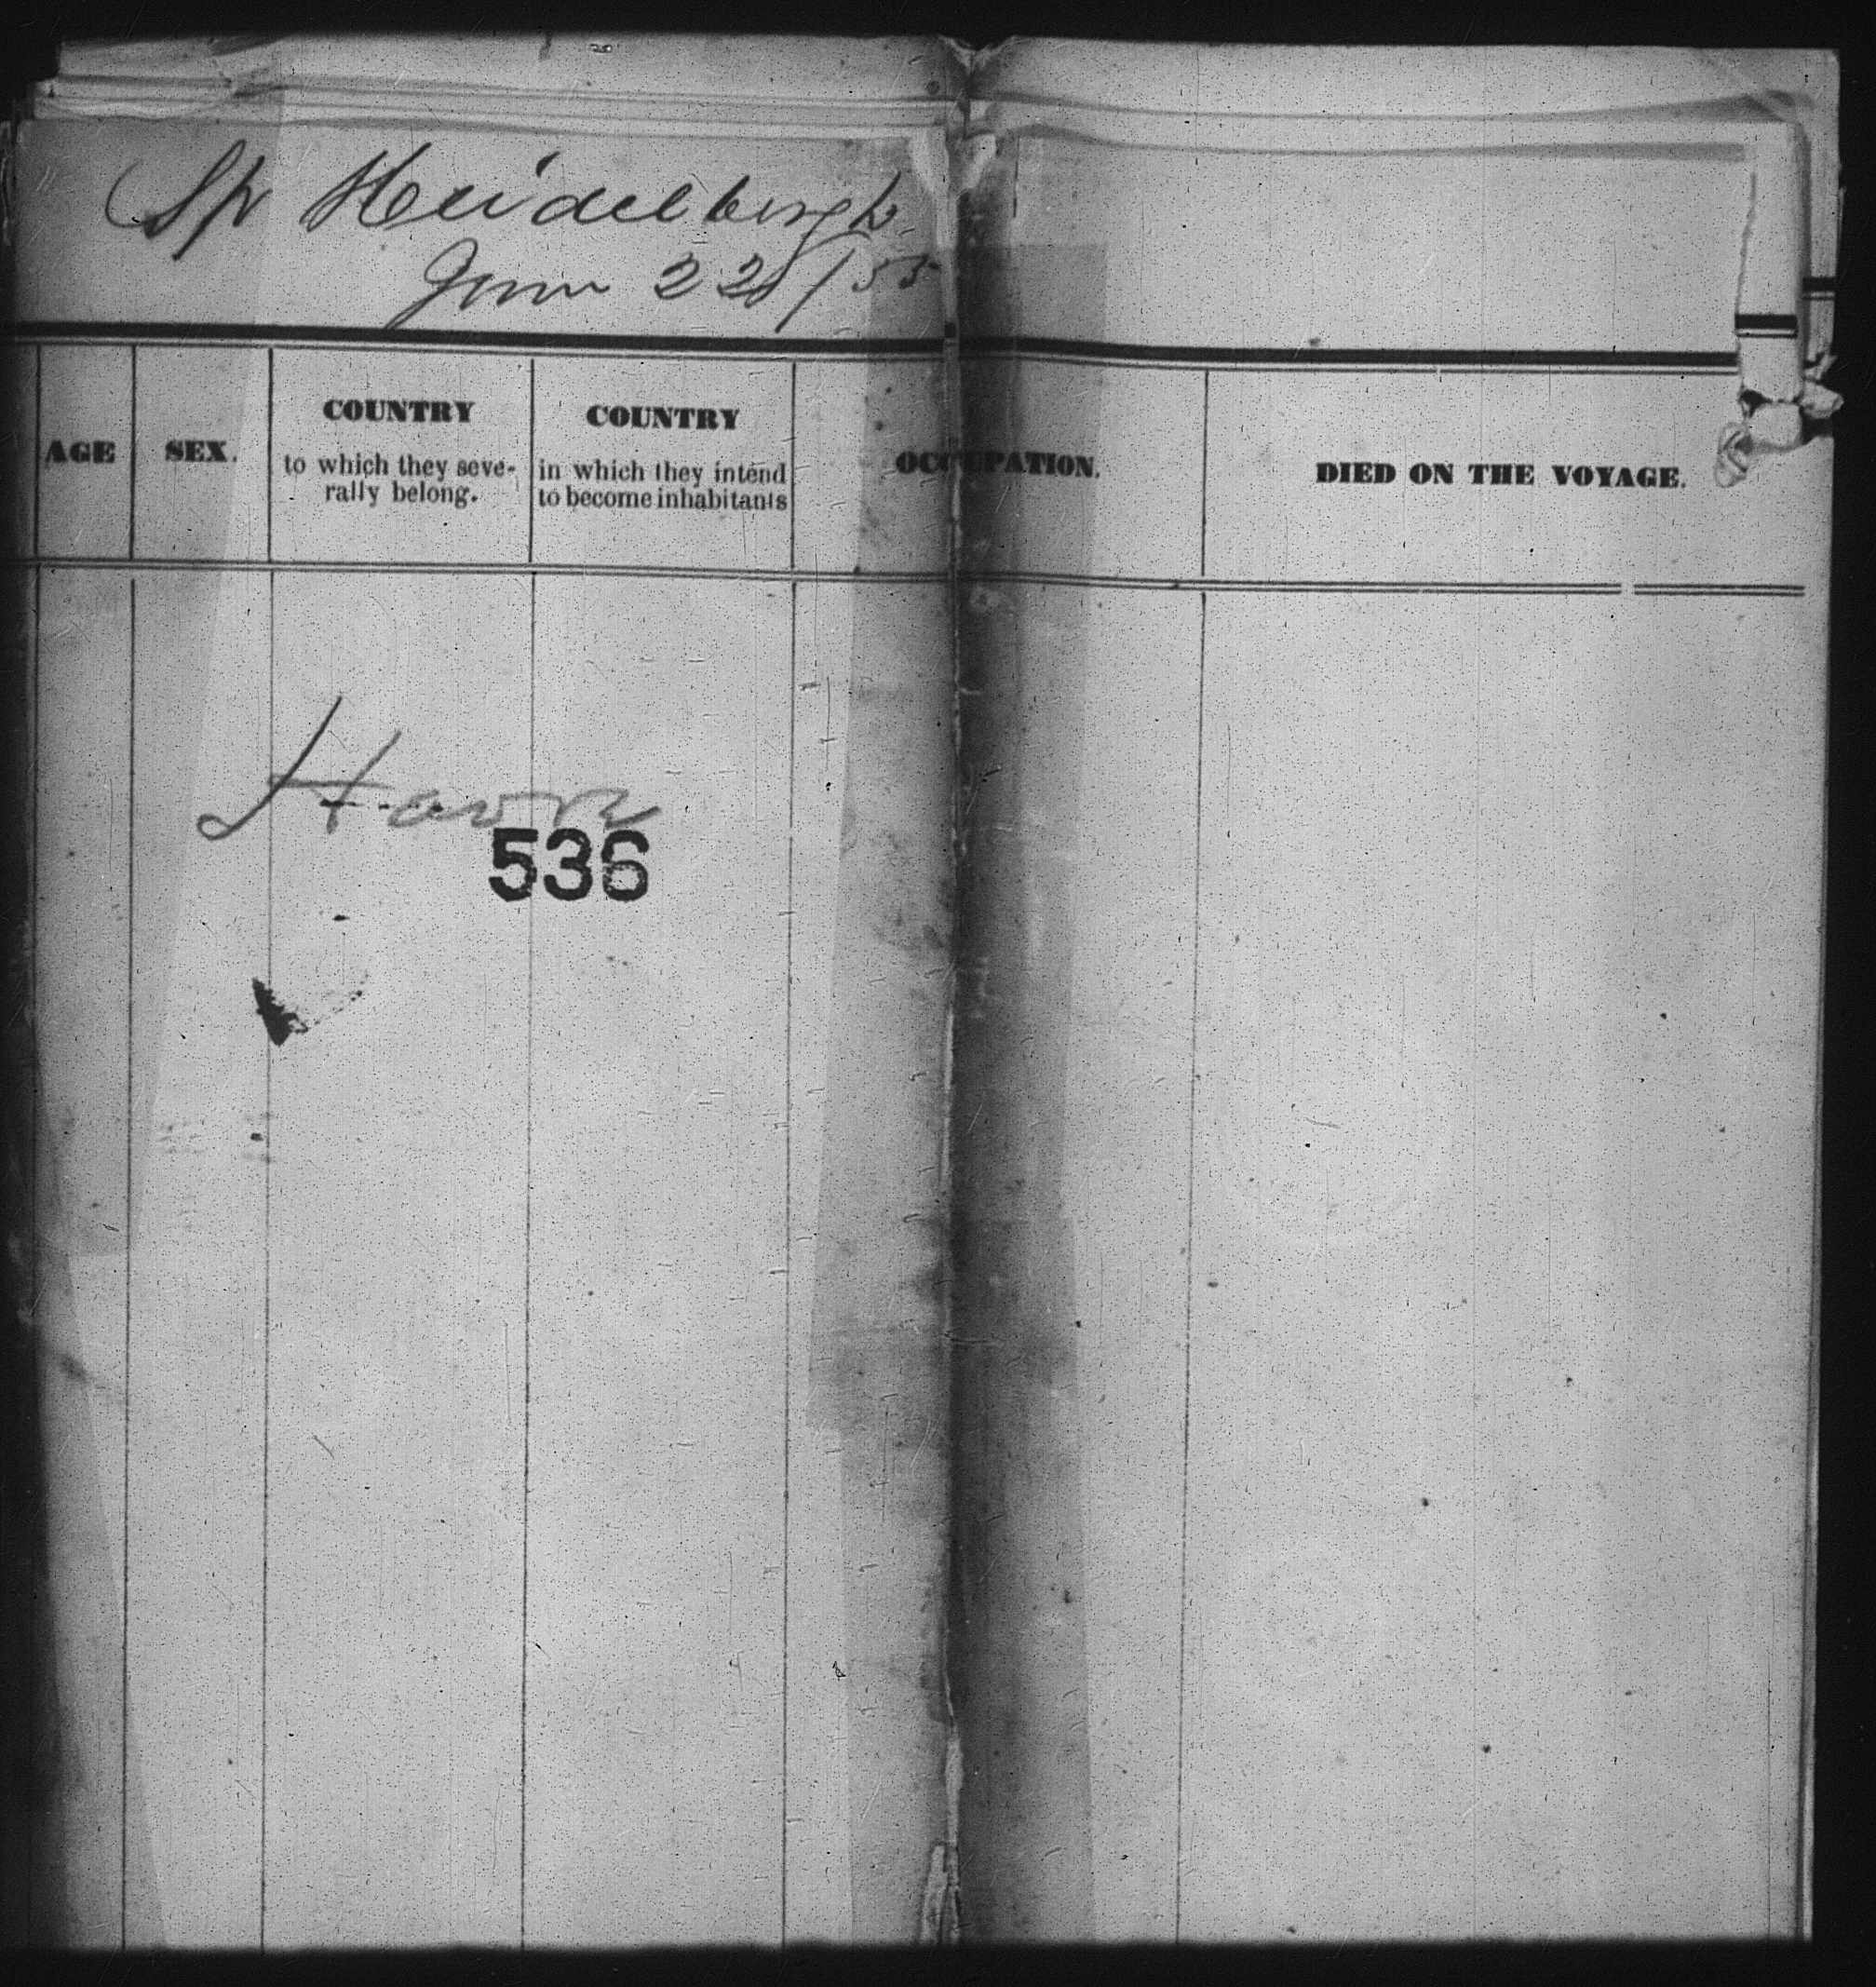 Sp Heidelbergh
June 22d/55
AGE
SEX.
COUNTRY
to which they seve-
rally belong.
COUNTRY
in which they intend
to become inhabitants
OCCUPATION.
DIED ON THE VOYAGE.
536